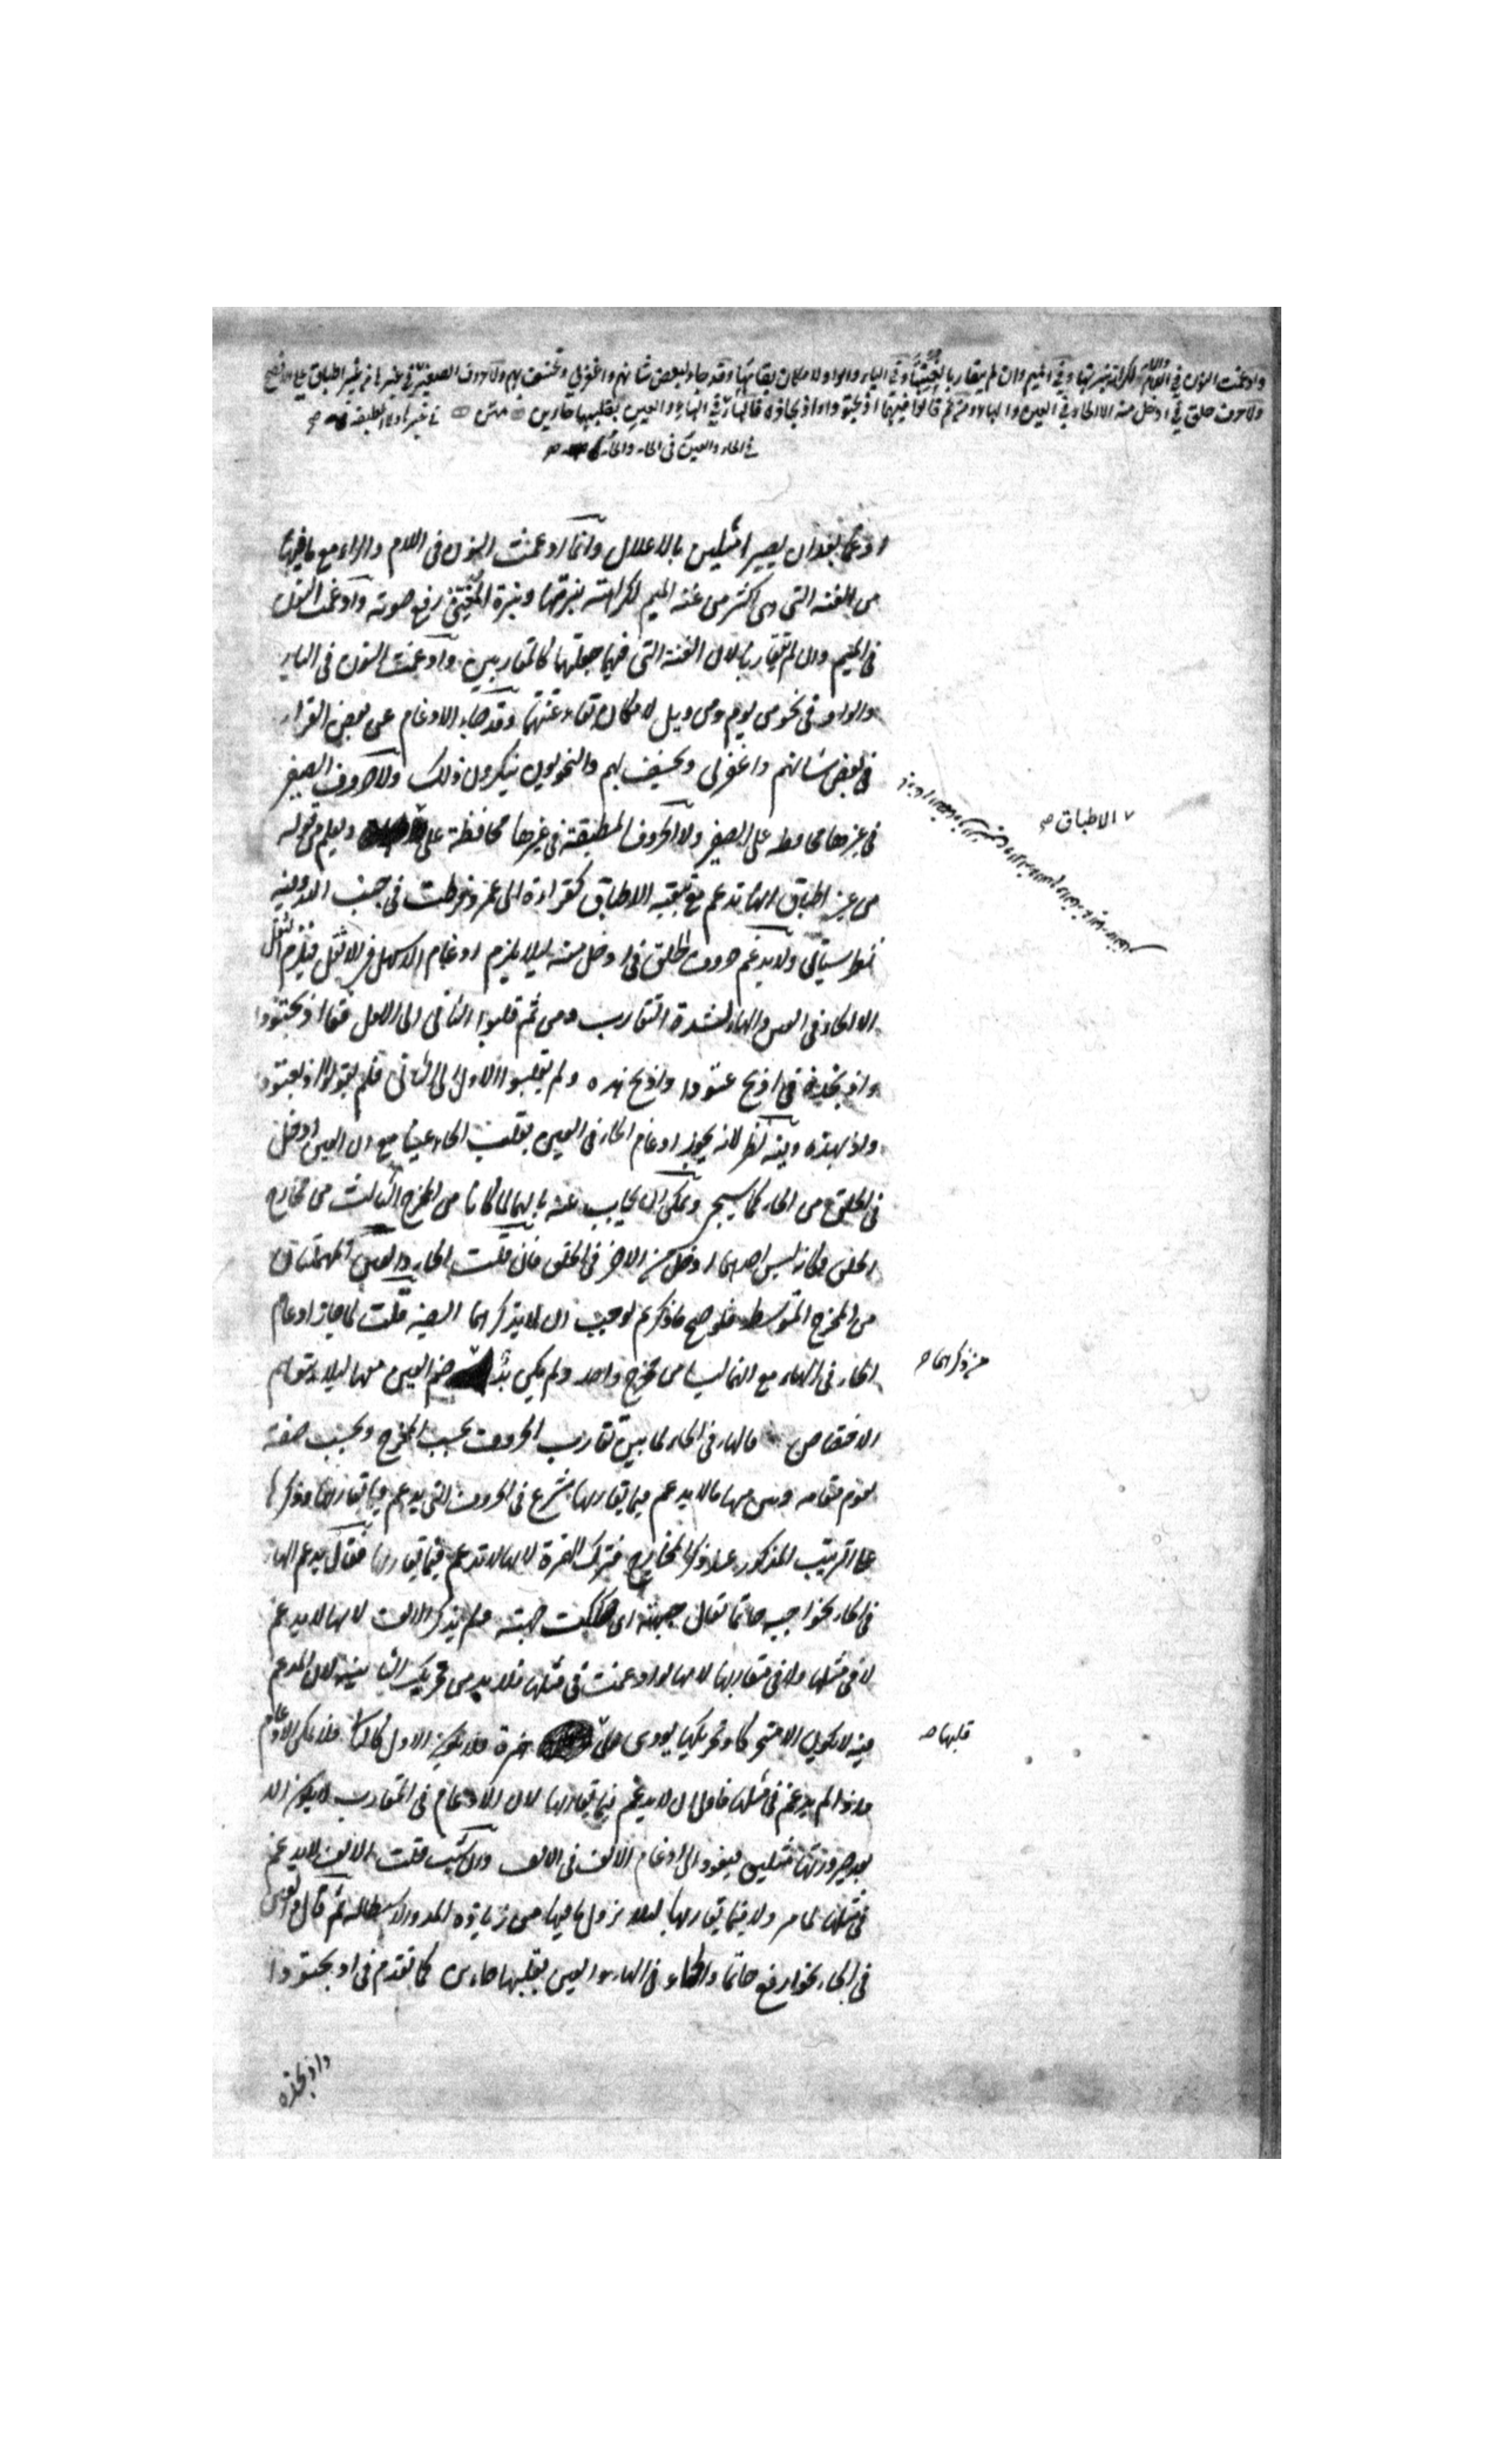 وادغمت النون في اللام والراء لكراهة نبرتها وفي الميم وان لم يتقاربا لغنتها وفي الياء والواو لامكان بقائها وقد جاء لبعض شانهم واغفر لي ونخسف بهم ولا حروف الصفير في غيرها ولا المطبقة في غيرها من غير اطباق على الافصح
ولا حرف حلق في ادخل منه الا الحاء في العين والهاء ومن ثم قالوا فيهما اذبحتودا واذبحاذه فالهاء في الحاء والعين في الحاء والحاء في الهاء والعين بقلبهما حاءين متن
ادغما بعد ان يصيرا مثلين بالاعلال وانما ادغمت النون في اللام والراء مع ما فيها
من الغنة التي هي اكثر من غنة الميم لكراهة نبرتها ونبرة المغني رفع صوته وادغمت النون
في الميم وان لم يتقاربا لان الغنة التي فيهما جعلتهما كالمتقاربين وادغمت النون في الياء
والواو في نحو من يوم ومن ويل لامكان بقاء غنتها وقد جاء الادغام عن بعض القراء
في لبعض شانهم واغفر لي ونخسف بهم والنحويون ينكرون ذلك ولا حروف الصفير
في غيرها محافظة على الصفير ولا الحروف المطبقة في غيرها محافظة على ويعلم من قوله
من غير اطباق انها تدغم مع بقية الاطباق كقراءة ابي عمرو فرطت في جنب الله وفيه
نظر سيأتي ولا يدغم حروف الحلق في ادخل منه لئلا يلزم ادغام الاسهل في الاثقل فيلزم الثقل
الا الحاء في العين والهاء لشدة التقارب ومن ثم قلبوا الثاني الى الاول فقالوا اذبحتودا
واذبحاذه في اذبح عتودا واذبح هذه ولم يقلبوا الاول الى الثاني فلم يقولوا اذبعتودا
واذبهذه وفيه نظر لانه يجوز ادغام الحاء في العين بقلب الحاء عينا مع ان العين ادخل
في الحلق من الحاء كما سيجيء ويمكن ان يجاب عنه بانهما لما كانا من المخرج الثالث من مخارج
الحلق فكانه ليس احدهما ادخل من الاخر في الحلق فان قلت الحاء والعين المهملتان
من المخرج المتوسط فلو صح ما ذكرتم لوجب ان لا يذكرهما الصنف قلت لما جاز ادغام
الحاء في الهاء مع انهما ليسا من مخرج واحد ولم يكن بد ضم العين معها لئلا يتوهم
الاختصاص فالهاء في الحاء لما بين تقارب الحروف بحسب المخرج وبحسب صفة
تقوم مقامه وبين منها ما لا يدغم فيما يقاربها شرع في الحروف التي يدغم فيما يقاربها وذكرها
على الترتيب المذكور عند ذكر المخارج فترك الهمزة لانها لا تدغم فيما يقاربها فقال يدغم الهاء
في الحاء نحو اجبه حاتما يقال جبهته اي صككت جبهته ولم يذكر الالف لانها لا يدغم
لا في مثلها ولا في مقاربها لانها لو ادغمت في مثلها فلا بد من تحريك الثانية لان المدغم
فيه لا يكون الا متحركا وتحريكها يودي الى همزة فلا يكون الاول كالثاني فلا يمكن الادغام
واذا لم يدغم في مثلها فاولى ان لا يدغم فيما يقاربها لان الادغام في المتقارب لا يكون الا
بعد صيرورتهما مثلين فيعود الى ادغام الالف في الالف وان شئت قلت الالف لا يدغم
في مثلها لما مر ولا فيما يقاربها لئلا يزول ما فيها من زيادة المد والاستطالة ثم قال والعين
في الحاء نحو ارفع حاتما والحاء في الهاء والعين بقلبهما حاءين كما تقدم في اذبحتودا
واذبحاذه
الاطباق صح
من ذكرهما صح
قلبها صح